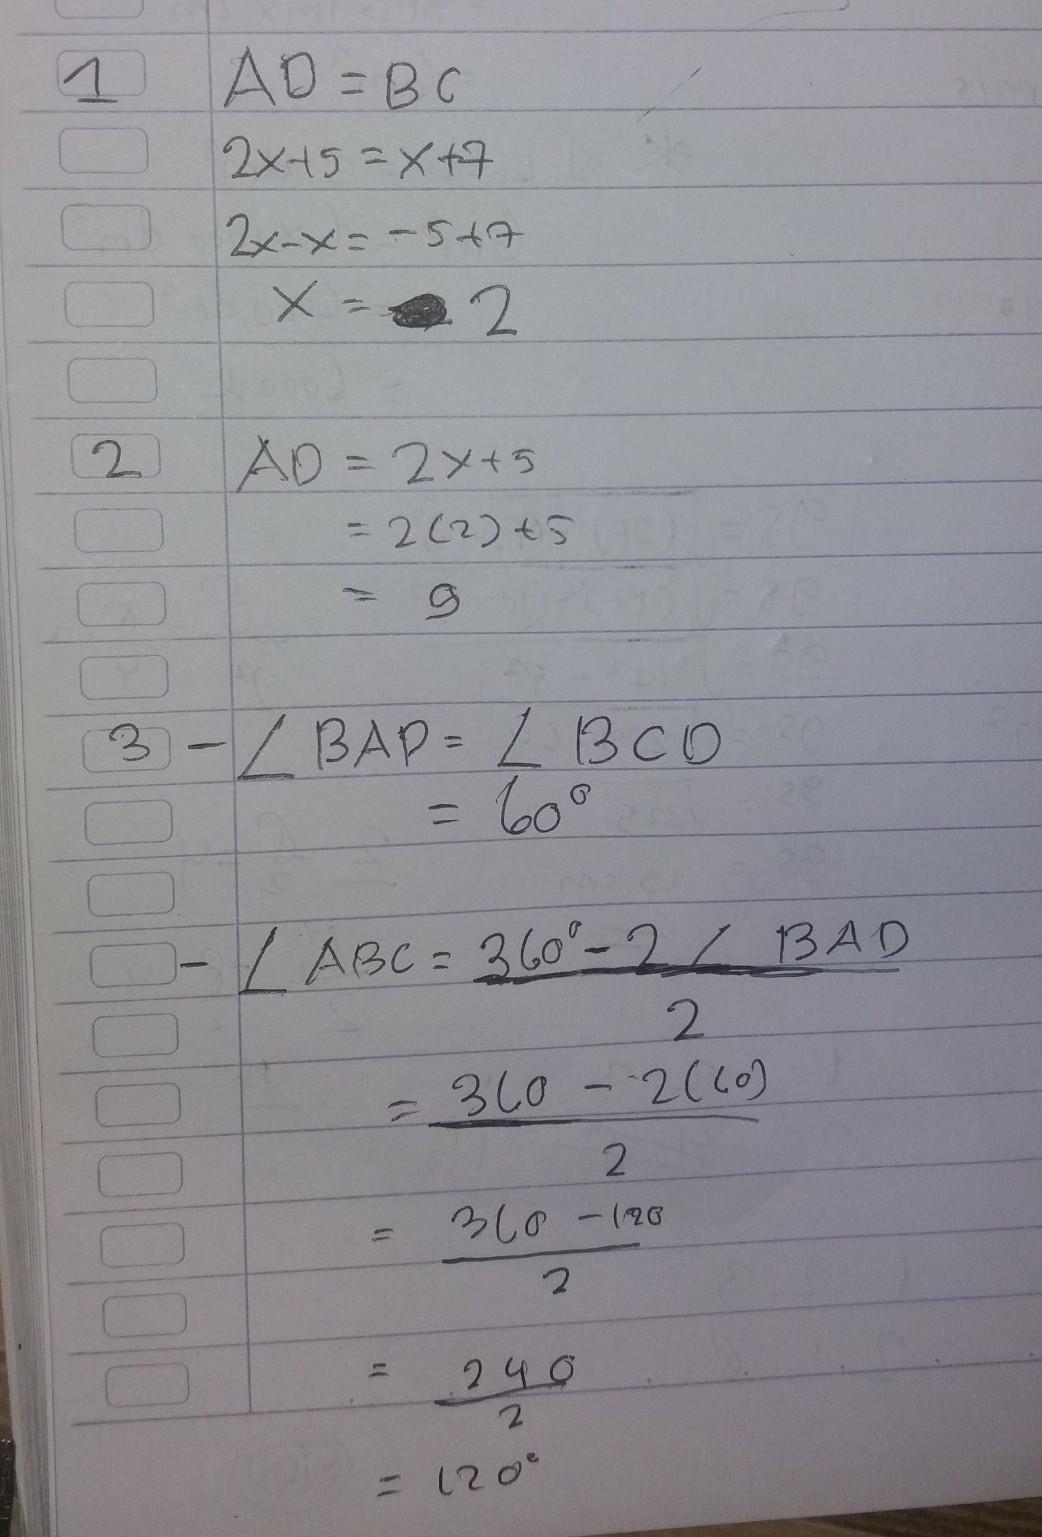 1 AD = BC
2x+5 = x+7
2x-x = -5+7
x = 2
2 AD = 2x+5
= 2(2)+5
= 9
3 - ∠ BAD = ∠ BCD
= 60°
- ∠ ABC = 360° - 2 ∠ BAD
2
= 360 - 2(60)
2
= 360 - 120
2
= 240
2
= 120°